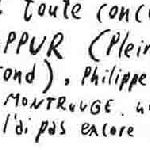 toute conc
PPUR (Plein
ond). Philippe
MONTROUGE.
l'ai pas encore